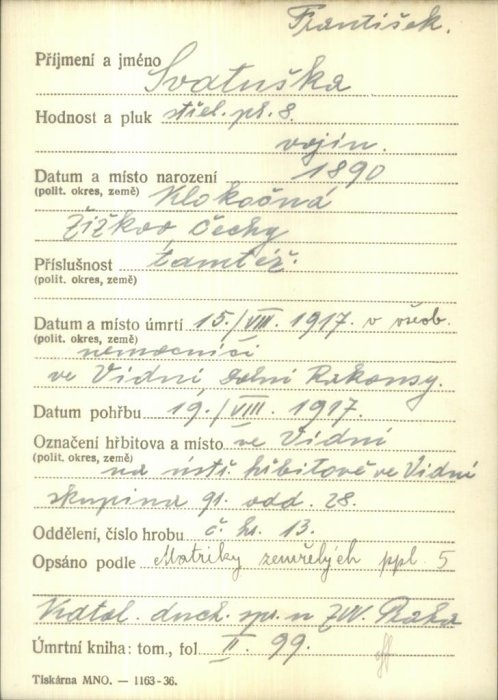 František.
Příjmení a jméno Svatuška
Hodnost a pluk střel. pl. 8.
vojín.
Datum a místo narození 1890
(polit. okres, země) Klokočná
Žižkov Čechy
Příslušnost tamtéž.
(polit. okres, země)
Datum a místo úmrtí 15./VIII. 1917. v všeob.
(polit. okres, země) nemocnici
ve Vídni, dolní Rakousy.
Datum pohřbu 19./VIII. 1917.
Označení hřbitova a místo ve Vídni
(polit. okres, země) na ústř. hřbitově ve Vídni
skupina 91. odd. 28.
Oddělení, číslo hrobu č. hr. 13.
Opsáno podle Matriky zemřelých ppl. 5
Katol. duch. spr. u ZVV. Praha
Úmrtní kniha: tom., fol. II. 99.
Tiskárna MNO. — 1163-36.